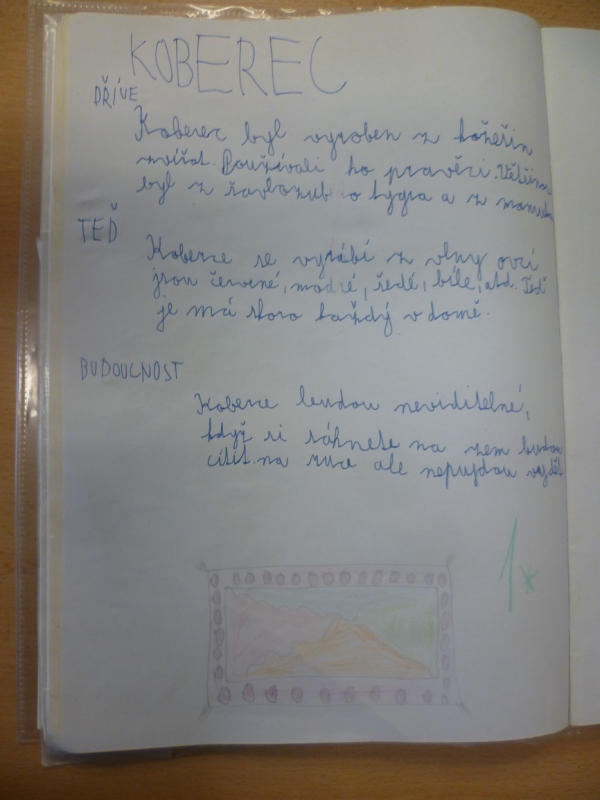 KOBEREC
DŘÍVE
Koberec byl vyroben z kožešin
zvířat. Používali ho pravěcí. Většinou
byl z šavlozub o tygra a z mamuta
TEĎ
Koberce se vyrábí z vlny ovcí
jsou červené, modré, šedé, bílé, atd. Teď
je má skoro každý v domě.
BUDOUCNOST
Koberce budou neviditelné,
když si sáhnete na zem budou
cítit na ruce ale nepujdou vidět
1*